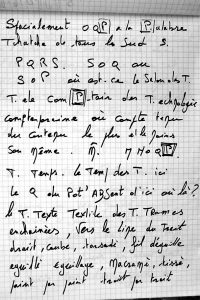 Spécialement O Q P a la P alabre
Tchatche de tous la Sud S.
P Q R S. S O Q ou
S O P où est-ce le Selon des T.
T. ele Com P toir des T. echnologie
contemporaine où compte tenu
du contenu le plus et le moins
Son même. M. M N O P.
T. Temps. le Temps des T. ici
le Q du Pot' ABsent d'ici où là ?
le T. Texte Textile des T. Trames
enchainées, Vers le Line du Trait
droit, courbe, torsadé, fil d'aiguille
eguillé eguillage, Macramé, tissé,
point par point trait par trait